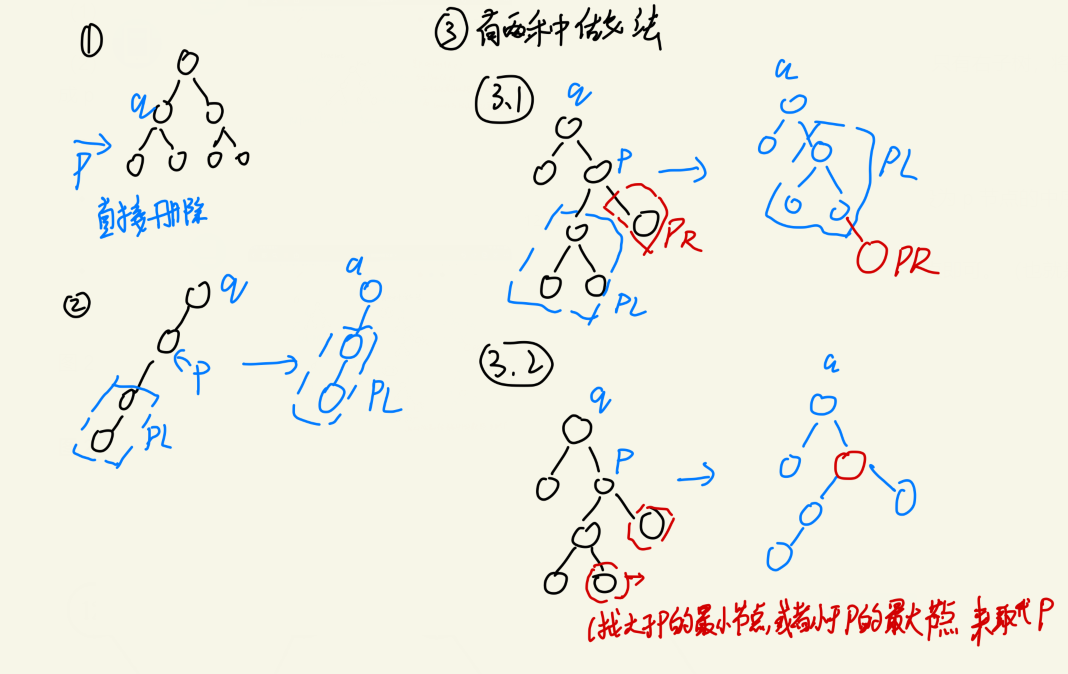 ①
q
P
直接删除
②
q
P
PL
a
PL
③ 有两种做法
3.1
q
P
PR
PL
a
PL
PR
3.2
q
P
a
(找大于P的最小节点,或者小于P的最大节点 来取代P